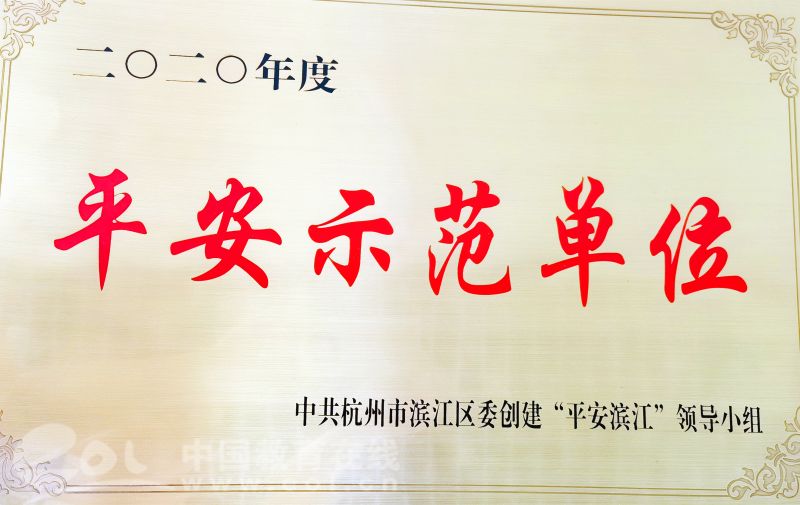 二〇二〇年度
平安示范单位
中共杭州市滨江区委创建“平安滨江”领导小组
eol 中国教育在线
www.eol.cn